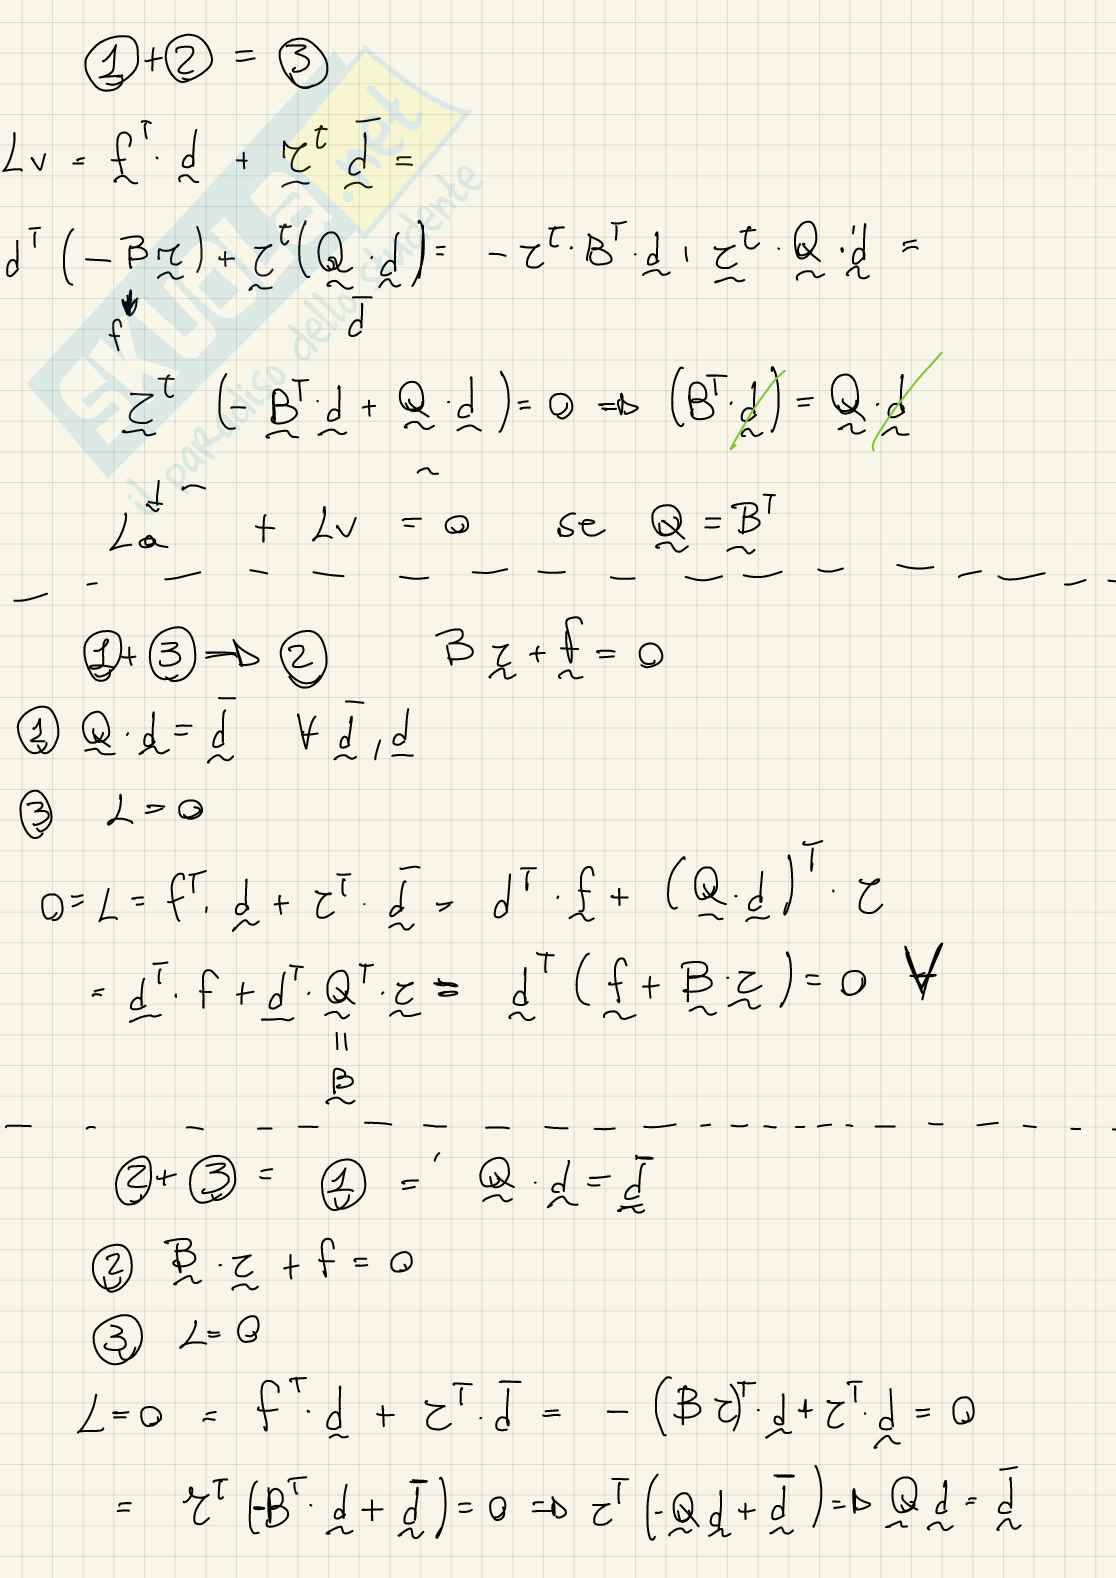 ① + ② = ③
SKUOLA.net
il paradiso dello studente
Lv = f^T · d + τ^t d̄ =
d^T (- B τ) + τ^t (Q · d) = - τ^t · B^T · d + τ^t · Q · d =
f d̄
τ^t (- B^T · d + Q · d) = 0 ⇒ (B^T · d) = Q · d
La + Lv = 0 se Q = B^T
① + ③ ⇒ ② B τ + f = 0
① Q · d = d̄ ∀ d̄, d
③ L = 0
0 = L = f^T · d + τ^T · d̄ = d^T · f + (Q · d)^T · τ
= d^T · f + d^T · Q^T · τ = d^T (f + B · τ) = 0 ∀
=
B
② + ③ = ① = Q · d = d̄
② B · τ + f = 0
③ L = 0
L = 0 = f^T · d + τ^T · d̄ = - (B τ)^T · d + τ^T · d = 0
= τ^T (-B^T · d + d̄) = 0 ⇒ τ^T (-Q d + d̄) ⇒ Q d = d̄